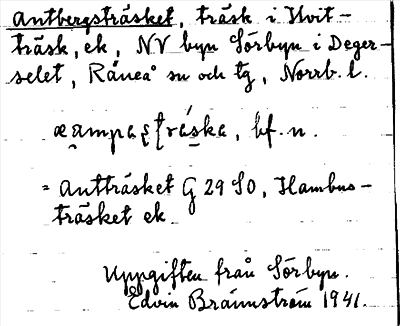 Antbergsträsket, träsk i Hvit-
träsk, ek, NV byn Sörbyn i Deger-
selet, Råneå sn och tg, Norrb. l.
bf. n.
= Antträsket G 29 SO, Hambus-
träsket ek.
Uppgiften från Sörbyn.
Edvin Brännström 1941.